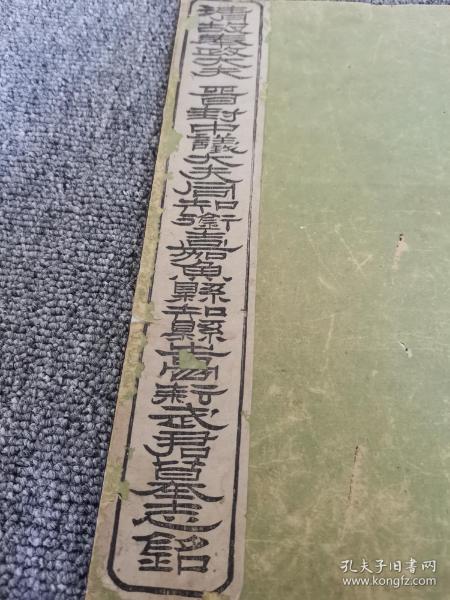 清誥授奉政大夫晉封中議大夫同知銜嘉魚縣知縣武君墓志銘
孔夫子旧书网
www.kongfz.com